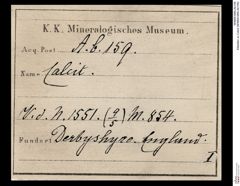 K. K. Mineralogisches Museum.
Acq. Post A.b. 159.
Name Calcit.
V. d. N. 1551. (2/5) M. 854.
Fundort Derbyshyre. England.
I